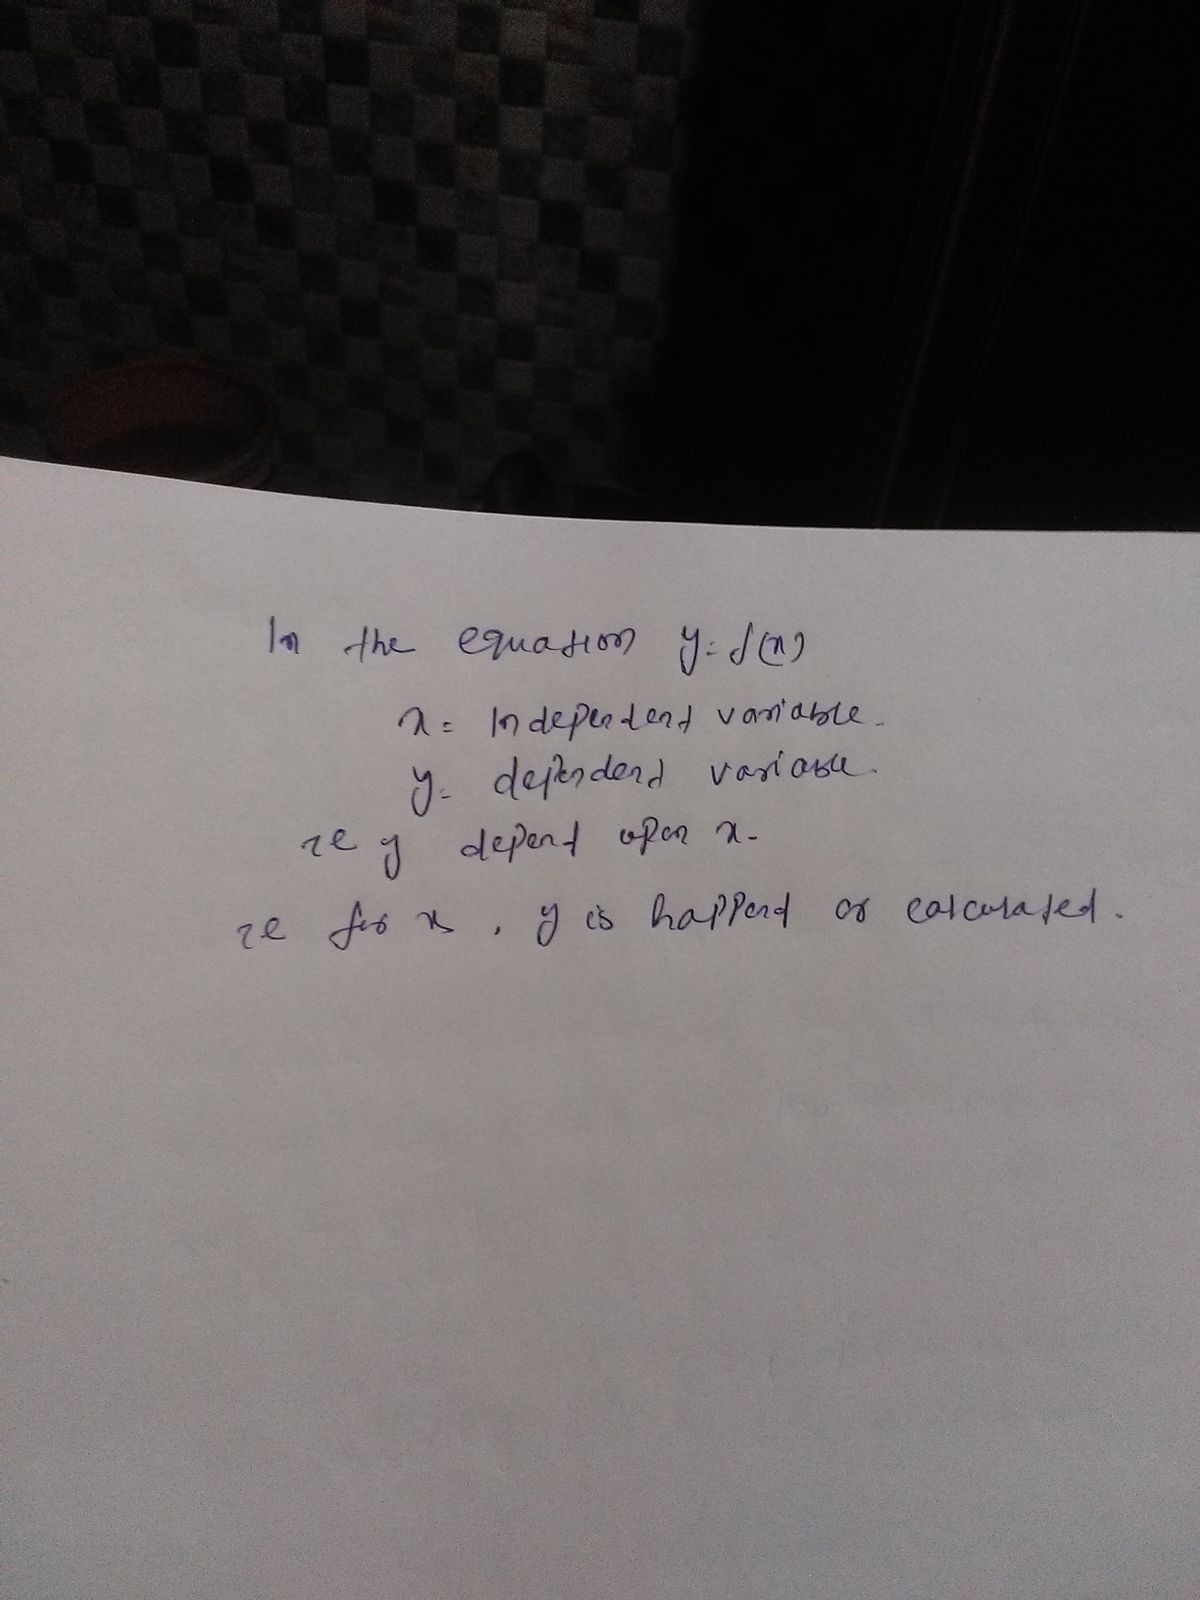 In the equation y = f(x)
x = Independent variable.
y = dependent variable.
ie y depend upon x.
ie for x, y is happend or calculated.